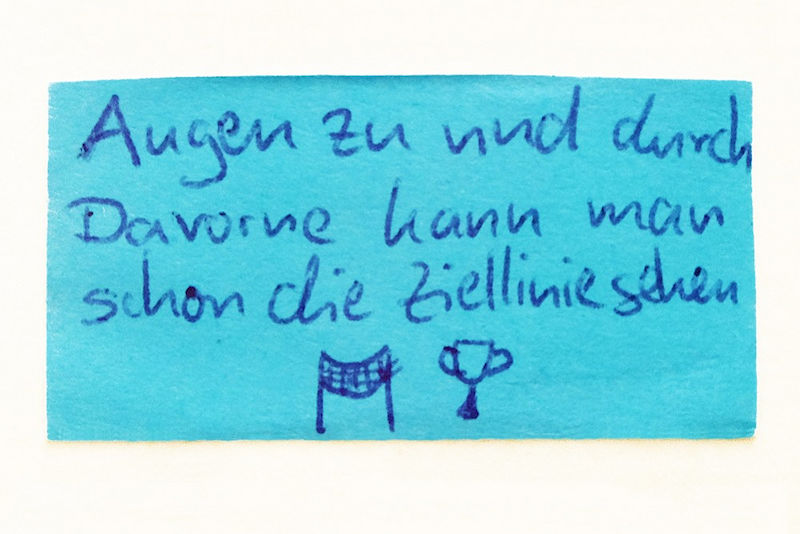 Augen zu und durch
Davorne kann man
schon die Ziellinie sehen